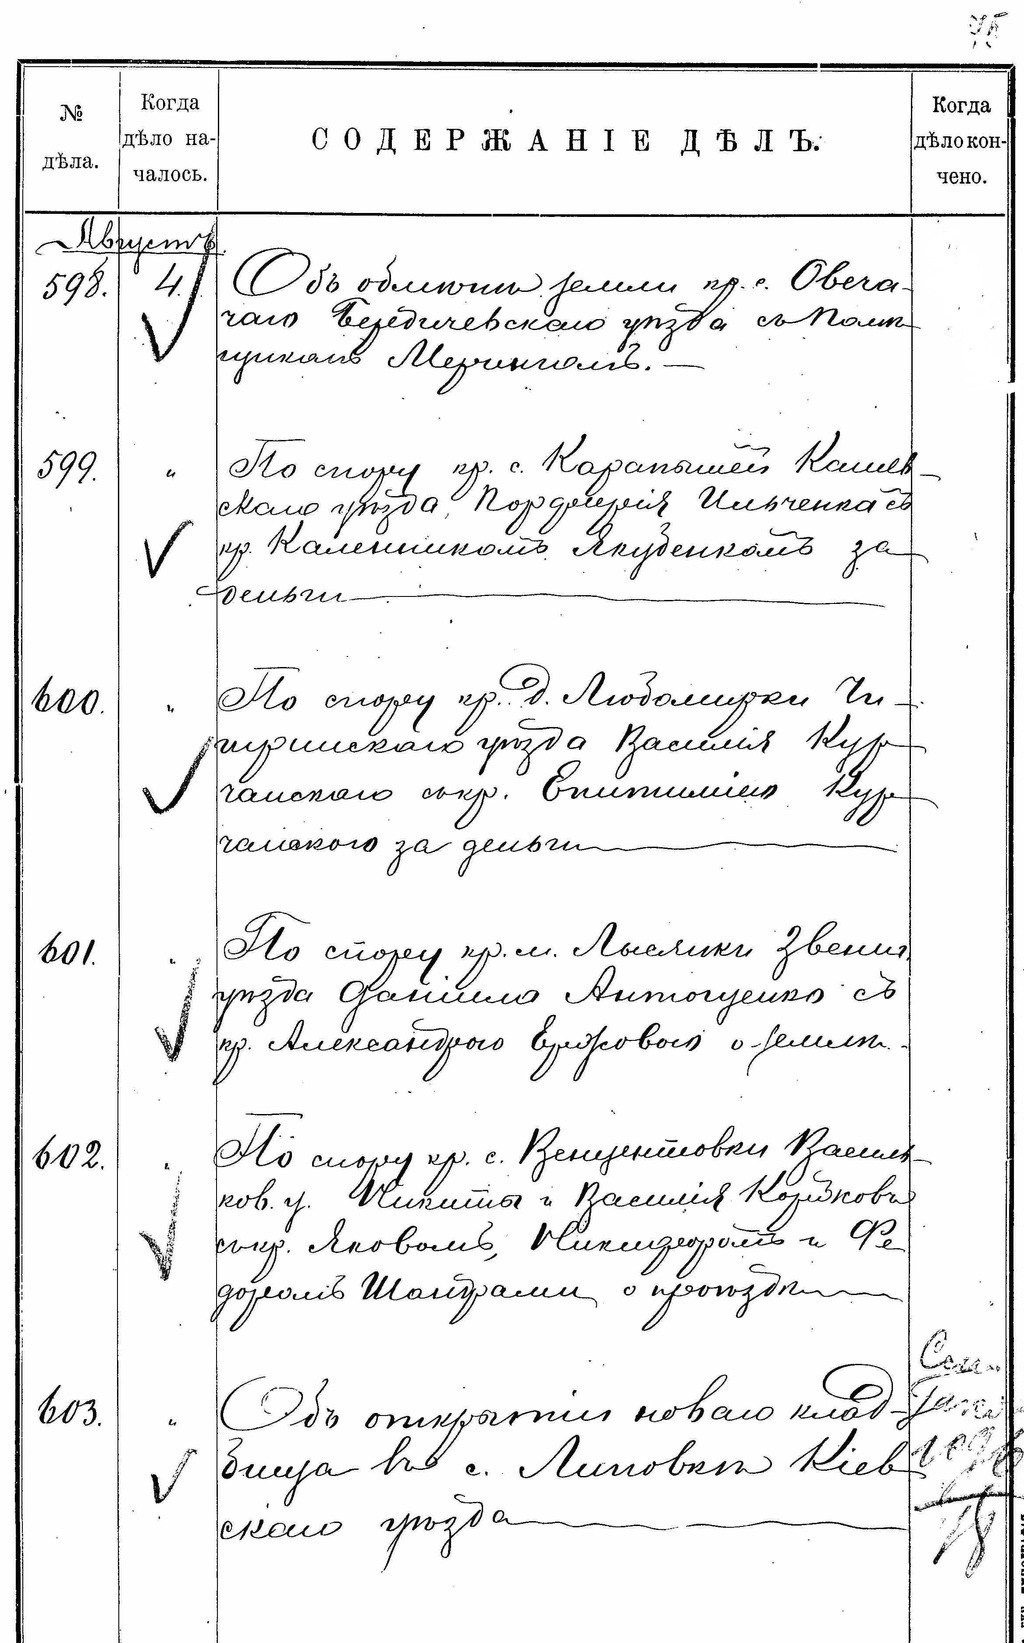 75
№ дѣла.
Когда дѣло началось.
СОДЕРЖАНІЕ ДѢЛЪ.
Когда дѣло кончено.
Августъ
598. 4. Объ обмѣнѣ земли кр. с. Овеча-
чаго Бердичевскаго уѣзда съ помѣ-
щикомъ Мерингомъ. —
599. " По спору кр. с. Карапышей Канев-
скаго уѣзда Порфирія Ильченка съ
кр. Каленникомъ Якубенкомъ за
деньги
600. " По спору кр. д. Любомирки Чи-
гиринскаго уѣзда Василія Кур-
чанскаго съ кр. Епитиміею Кур-
чанскою за деньги
601. " По спору кр. м. Лысянки Звениг.
уѣзда Даніила Антощенко съ
кр. Александрою о землѣ.
602. " По спору кр. с. Венцентовки Василь-
ков. у. Никиты и Василія
съ кр. Яковомъ, Никифоромъ и Ѳе-
доромъ о проѣздѣ
603. " Объ открытіи новаго клад-
бища въ с. Липовкѣ Кіев-
скаго уѣзда